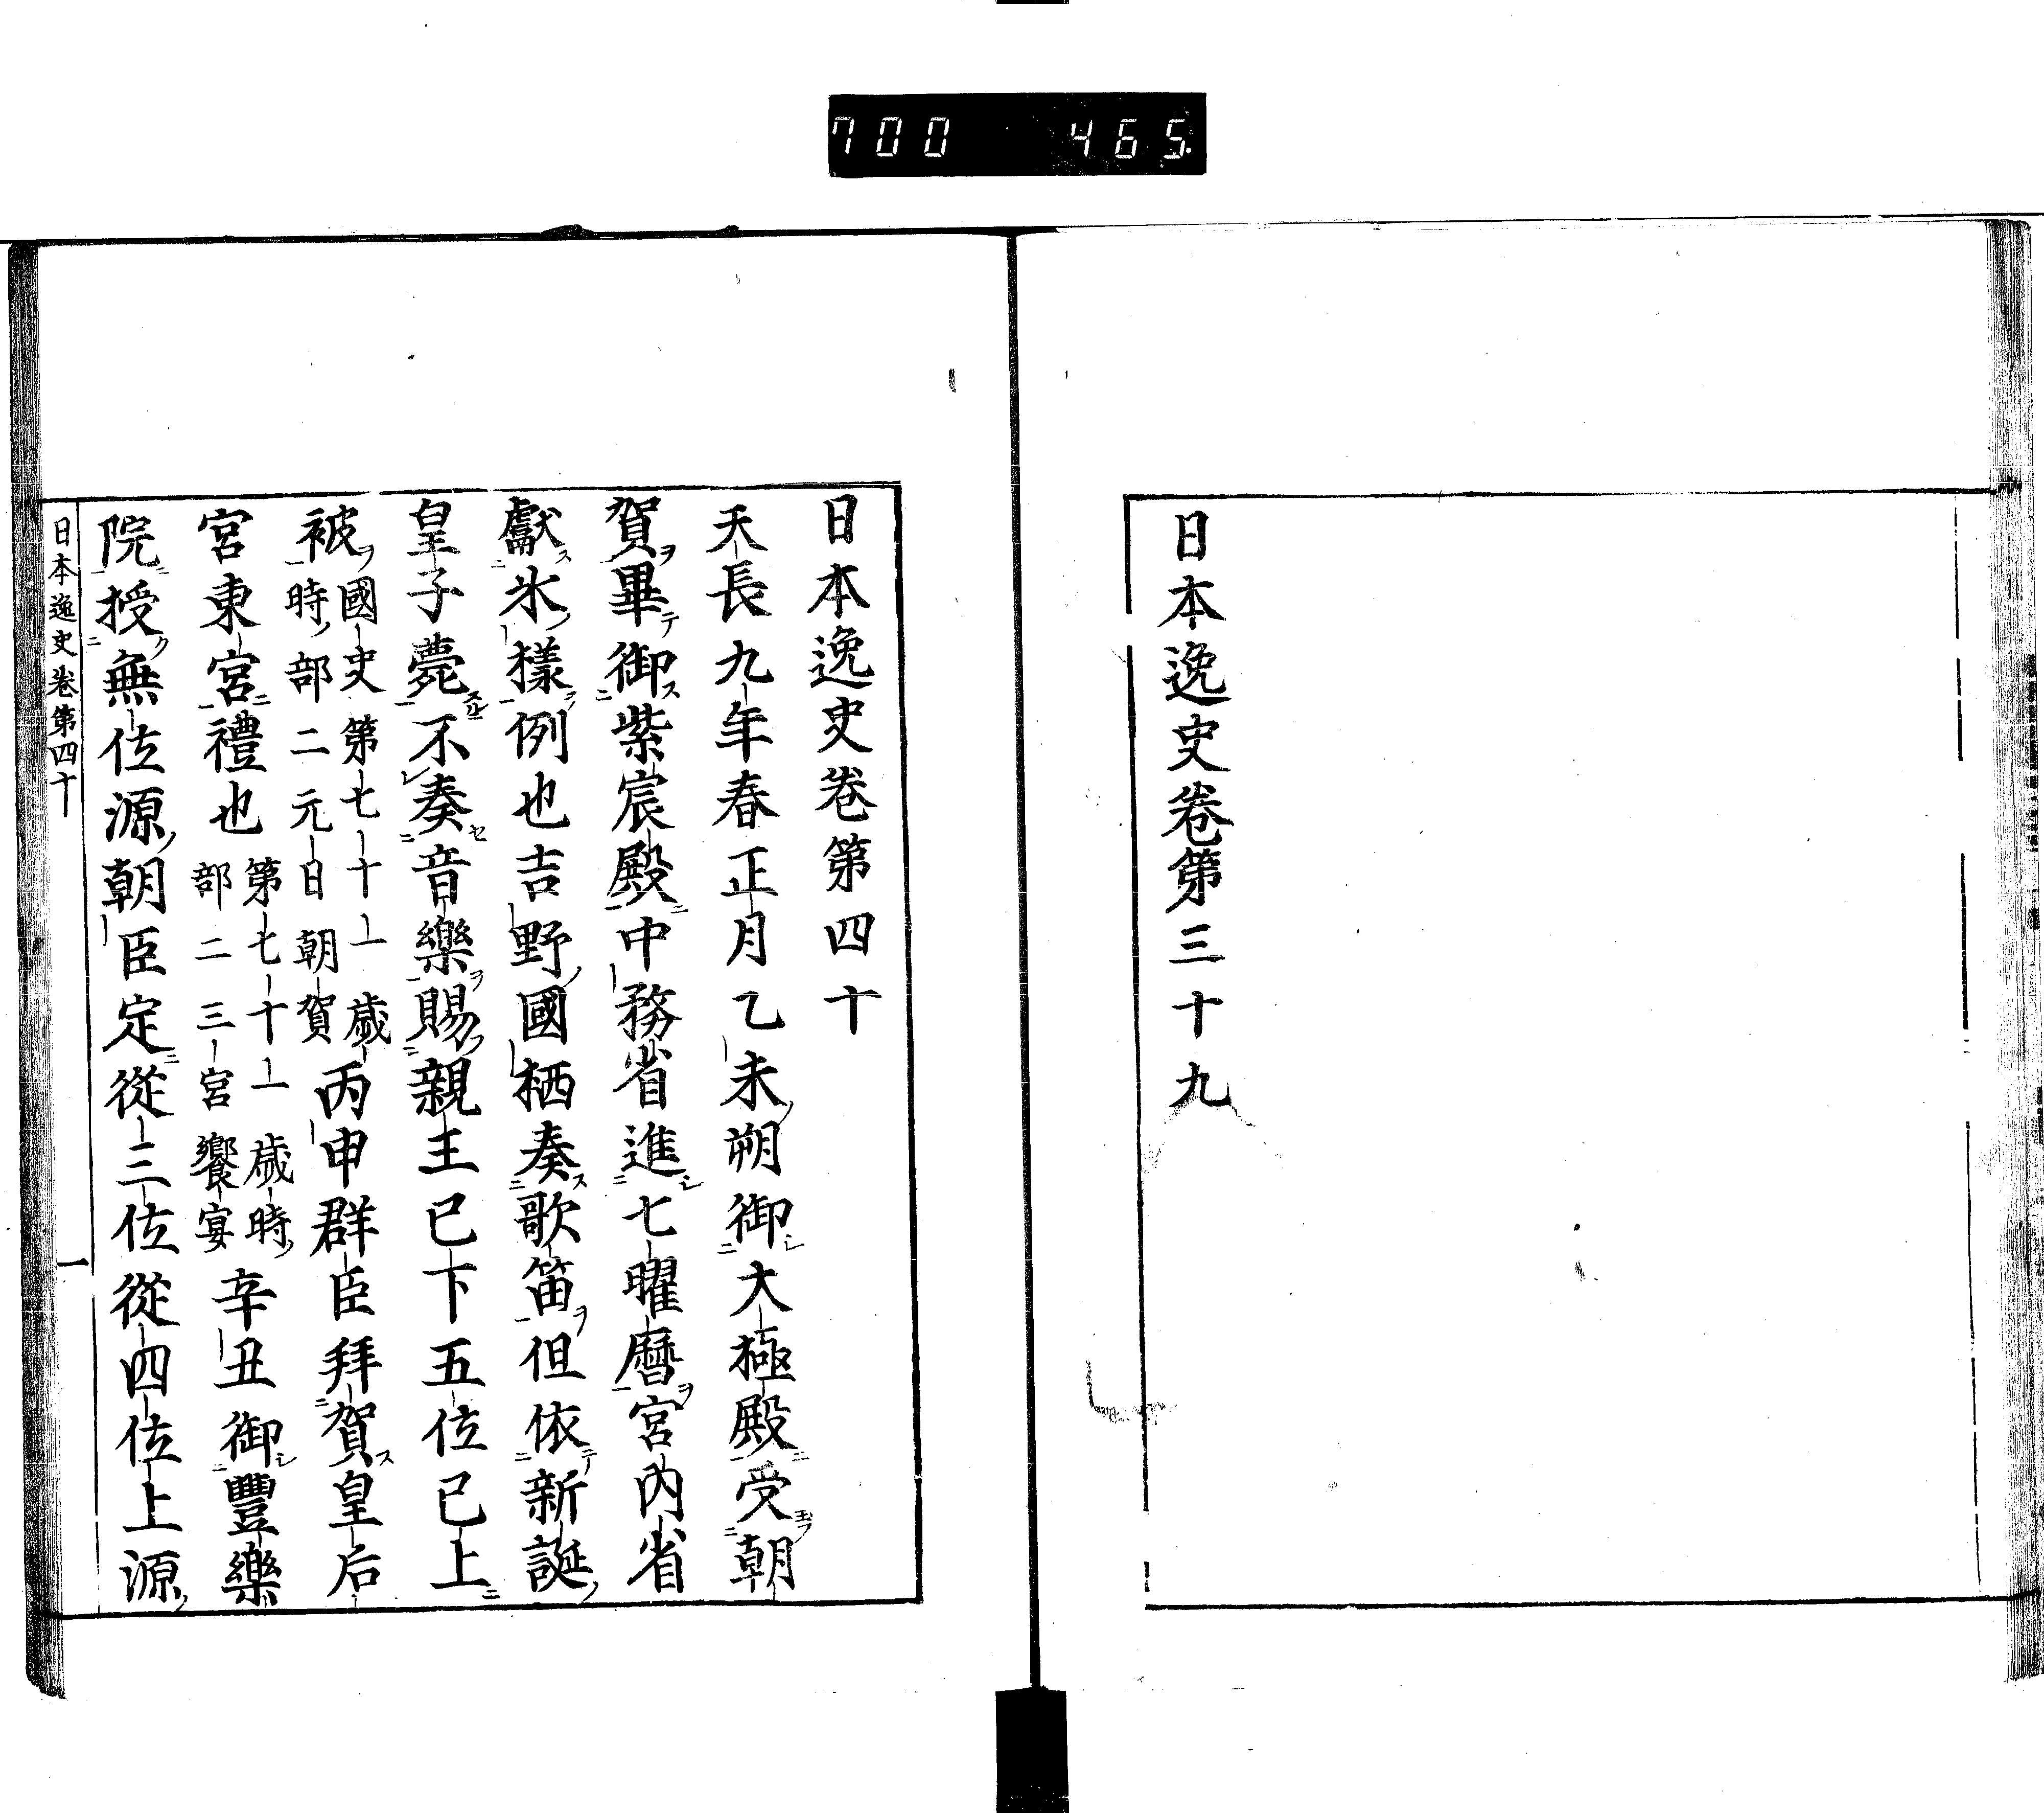 700 465
日本逸史卷第三十九
日本逸史卷第四十
天長九年春正月乙未朔御大極殿受朝
賀畢御紫宸殿中務省進七曜曆宮內省
獻氷樣例也吉野國栖奏歌笛但依新誕
皇子薨不奏音樂賜親王已下五位已上
被國史第七十一歲
時部二元日朝賀丙申群臣拜賀皇后
宮東宮禮也第七十一歲時
部二三宮饗宴辛丑御豐樂
院授無位源朝臣定從三位從四位上源
日本逸史卷第四十 一